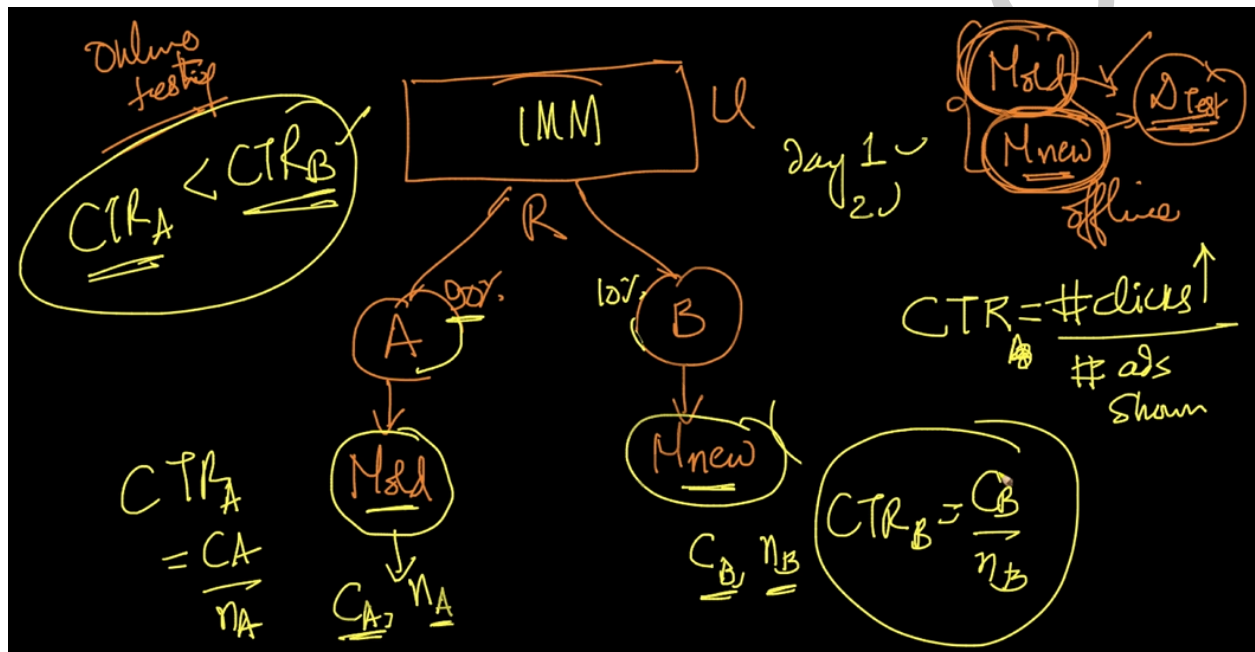 Online
testing
CTR_A < CTR_B
1MM
U
R
A
90%
10%
B
Day 1
2
Mold
Mnew
D Test
offline
CTR = #clicks ↑
# ads
shown
Mold
Mnew
CTR_A
= CA
nA
CA, nA
CB, nB
CTR_B = CB
nB